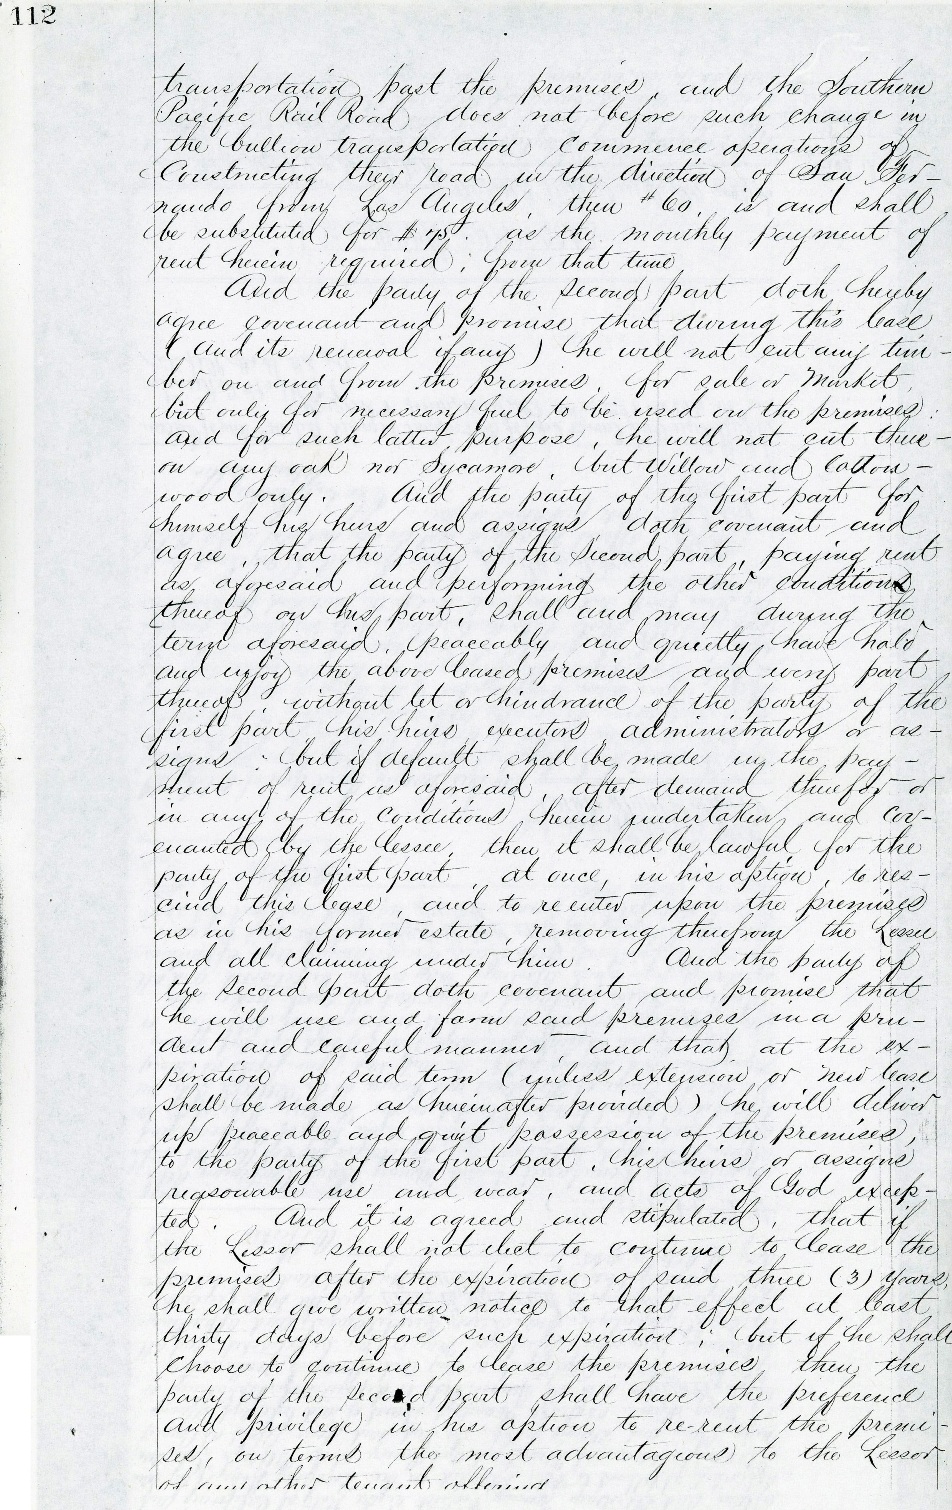 112
transportation past the premises, and the Southern
Pacific Rail Road does not before such change in
the bullion transportation commence operations of
Constructing their road in the direction of San Fer-
nando from Las Angeles, then $60. is and shall
be substituted for $75. as the monthly payment of
rent herein required; from that time
And the party of the second part doth hereby
agree covenant and promise that during this lease
(and its renewal if any) he will not cut any tim-
ber on and from the premises, for sale or Market,
but only for necessary fuel to be used on the premises:
and for such latter purpose, he will not cut there-
on any oak nor Sycamore, but Willow and Cotton-
wood only. And the party of the first part for
himself his heirs and assigns doth covenant and
agree, that the party of the Second part, paying rent
as aforesaid and performing the other conditions
thereof on his part, shall and may during the
term aforesaid, peaceably and quietly have hold
and enjoy the above leased premises and every part
thereof, without let or hindrance of the party of the
first part his heirs executors administrators or as-
signs: but if default shall be made in the pay-
ment of rent as aforesaid, after demand therefor or
in any of the conditions herein undertaken and cov-
enanted by the lessee, then it shall be lawful for the
party of the first part, at once, in his option, to res-
cind this lease, and to reenter upon the premises
as in his former estate, removing therefrom the Lessee
and all claiming under him. And the party of
the second part doth covenant and promise that
he will use and farm said premises in a pru-
dent and careful manner, and that at the ex-
piration of said term (unless extension or new lease
shall be made as hereinafter provided) he will deliver
up peaceable and quiet possession of the premises,
to the party of the first part, his heirs or assigns
reasonable use and wear, and acts of God excep-
ted. And it is agreed and stipulated, that if
the Lessor shall not elect to continue to lease the
premises after the expiration of said three (3) years,
he shall give written notice to that effect at least
thirty days before such expiration; but if he shall
Choose to continue to lease the premises, then the
party of the second part shall have the preference
and privilege in his option to re-rent the premi-
ses, on terms the most advantageous to the Lessor
of any other tenant offering